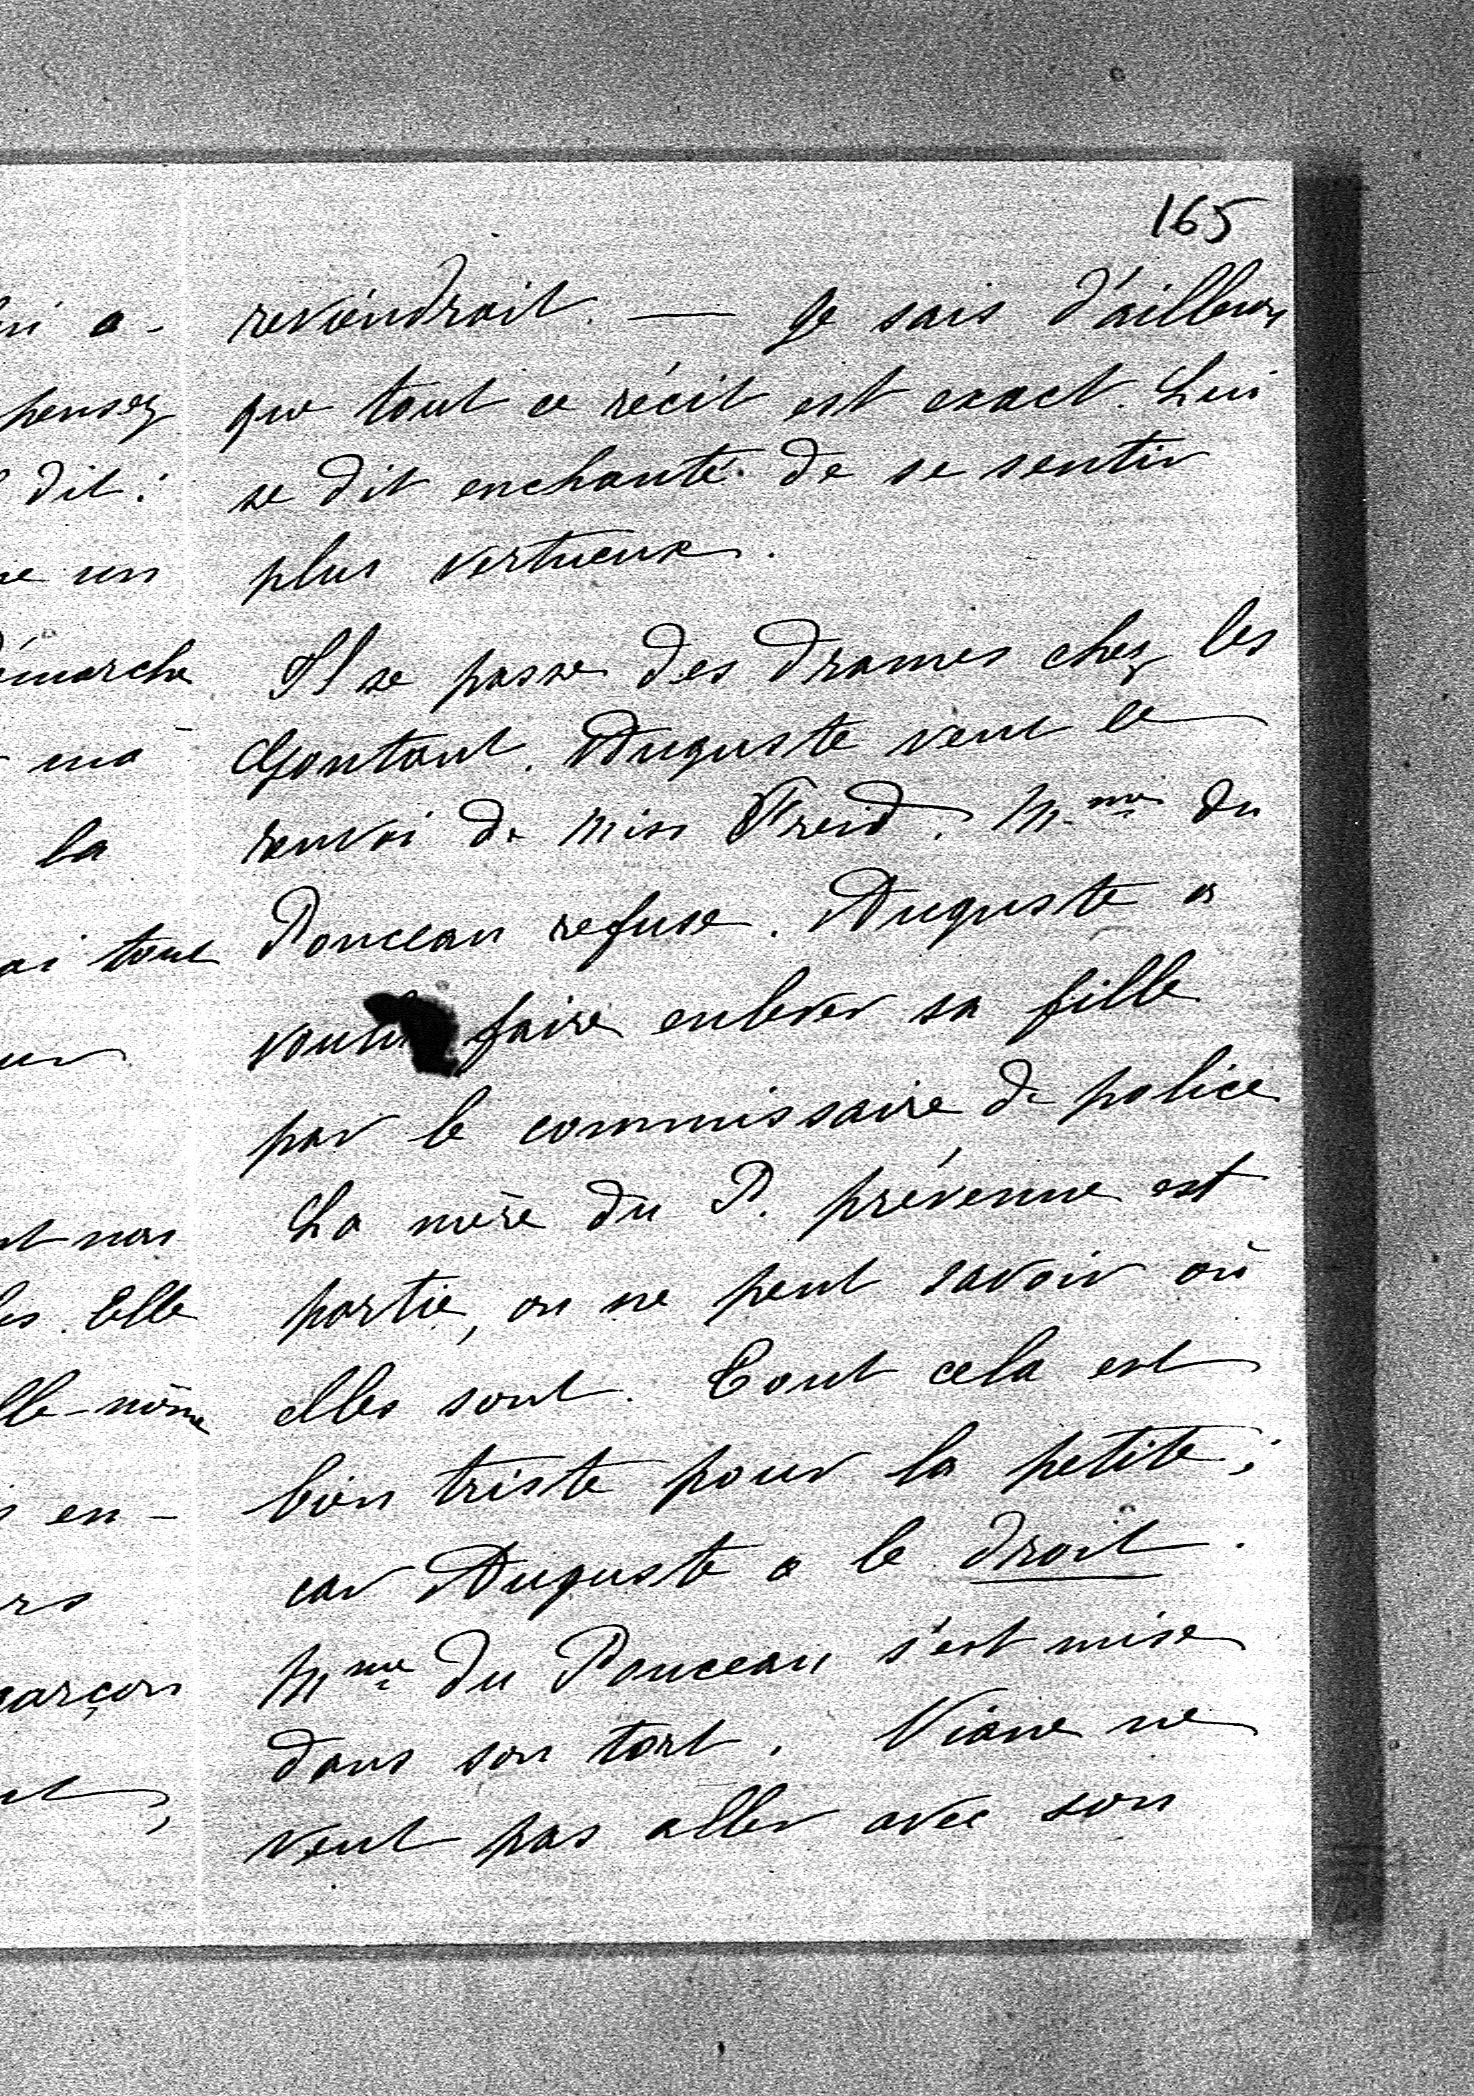 165
reviendrait. — Je sais d'ailleurs
que tout ce récit est exact. Lui
se dit enchanté de se sentir
plus vertueux.
Il se passe des drames chez les
Gontaut. Auguste veut le
renvoi de Miss Freid. Mme du
Ponceau refuse. Auguste a
voulu faire enlever sa fille
par le commissaire de police
La mère du P. prévenue est
partie, on ne peut savoir où
elles sont. Tout cela est
bien triste pour la petite;
car Auguste a le droit.
Mme du Ponceau s'est mise
dans son tort. Viane ne
veut pas aller avec son
a-
pensez
dit:
un
la
tout
Elle
en-